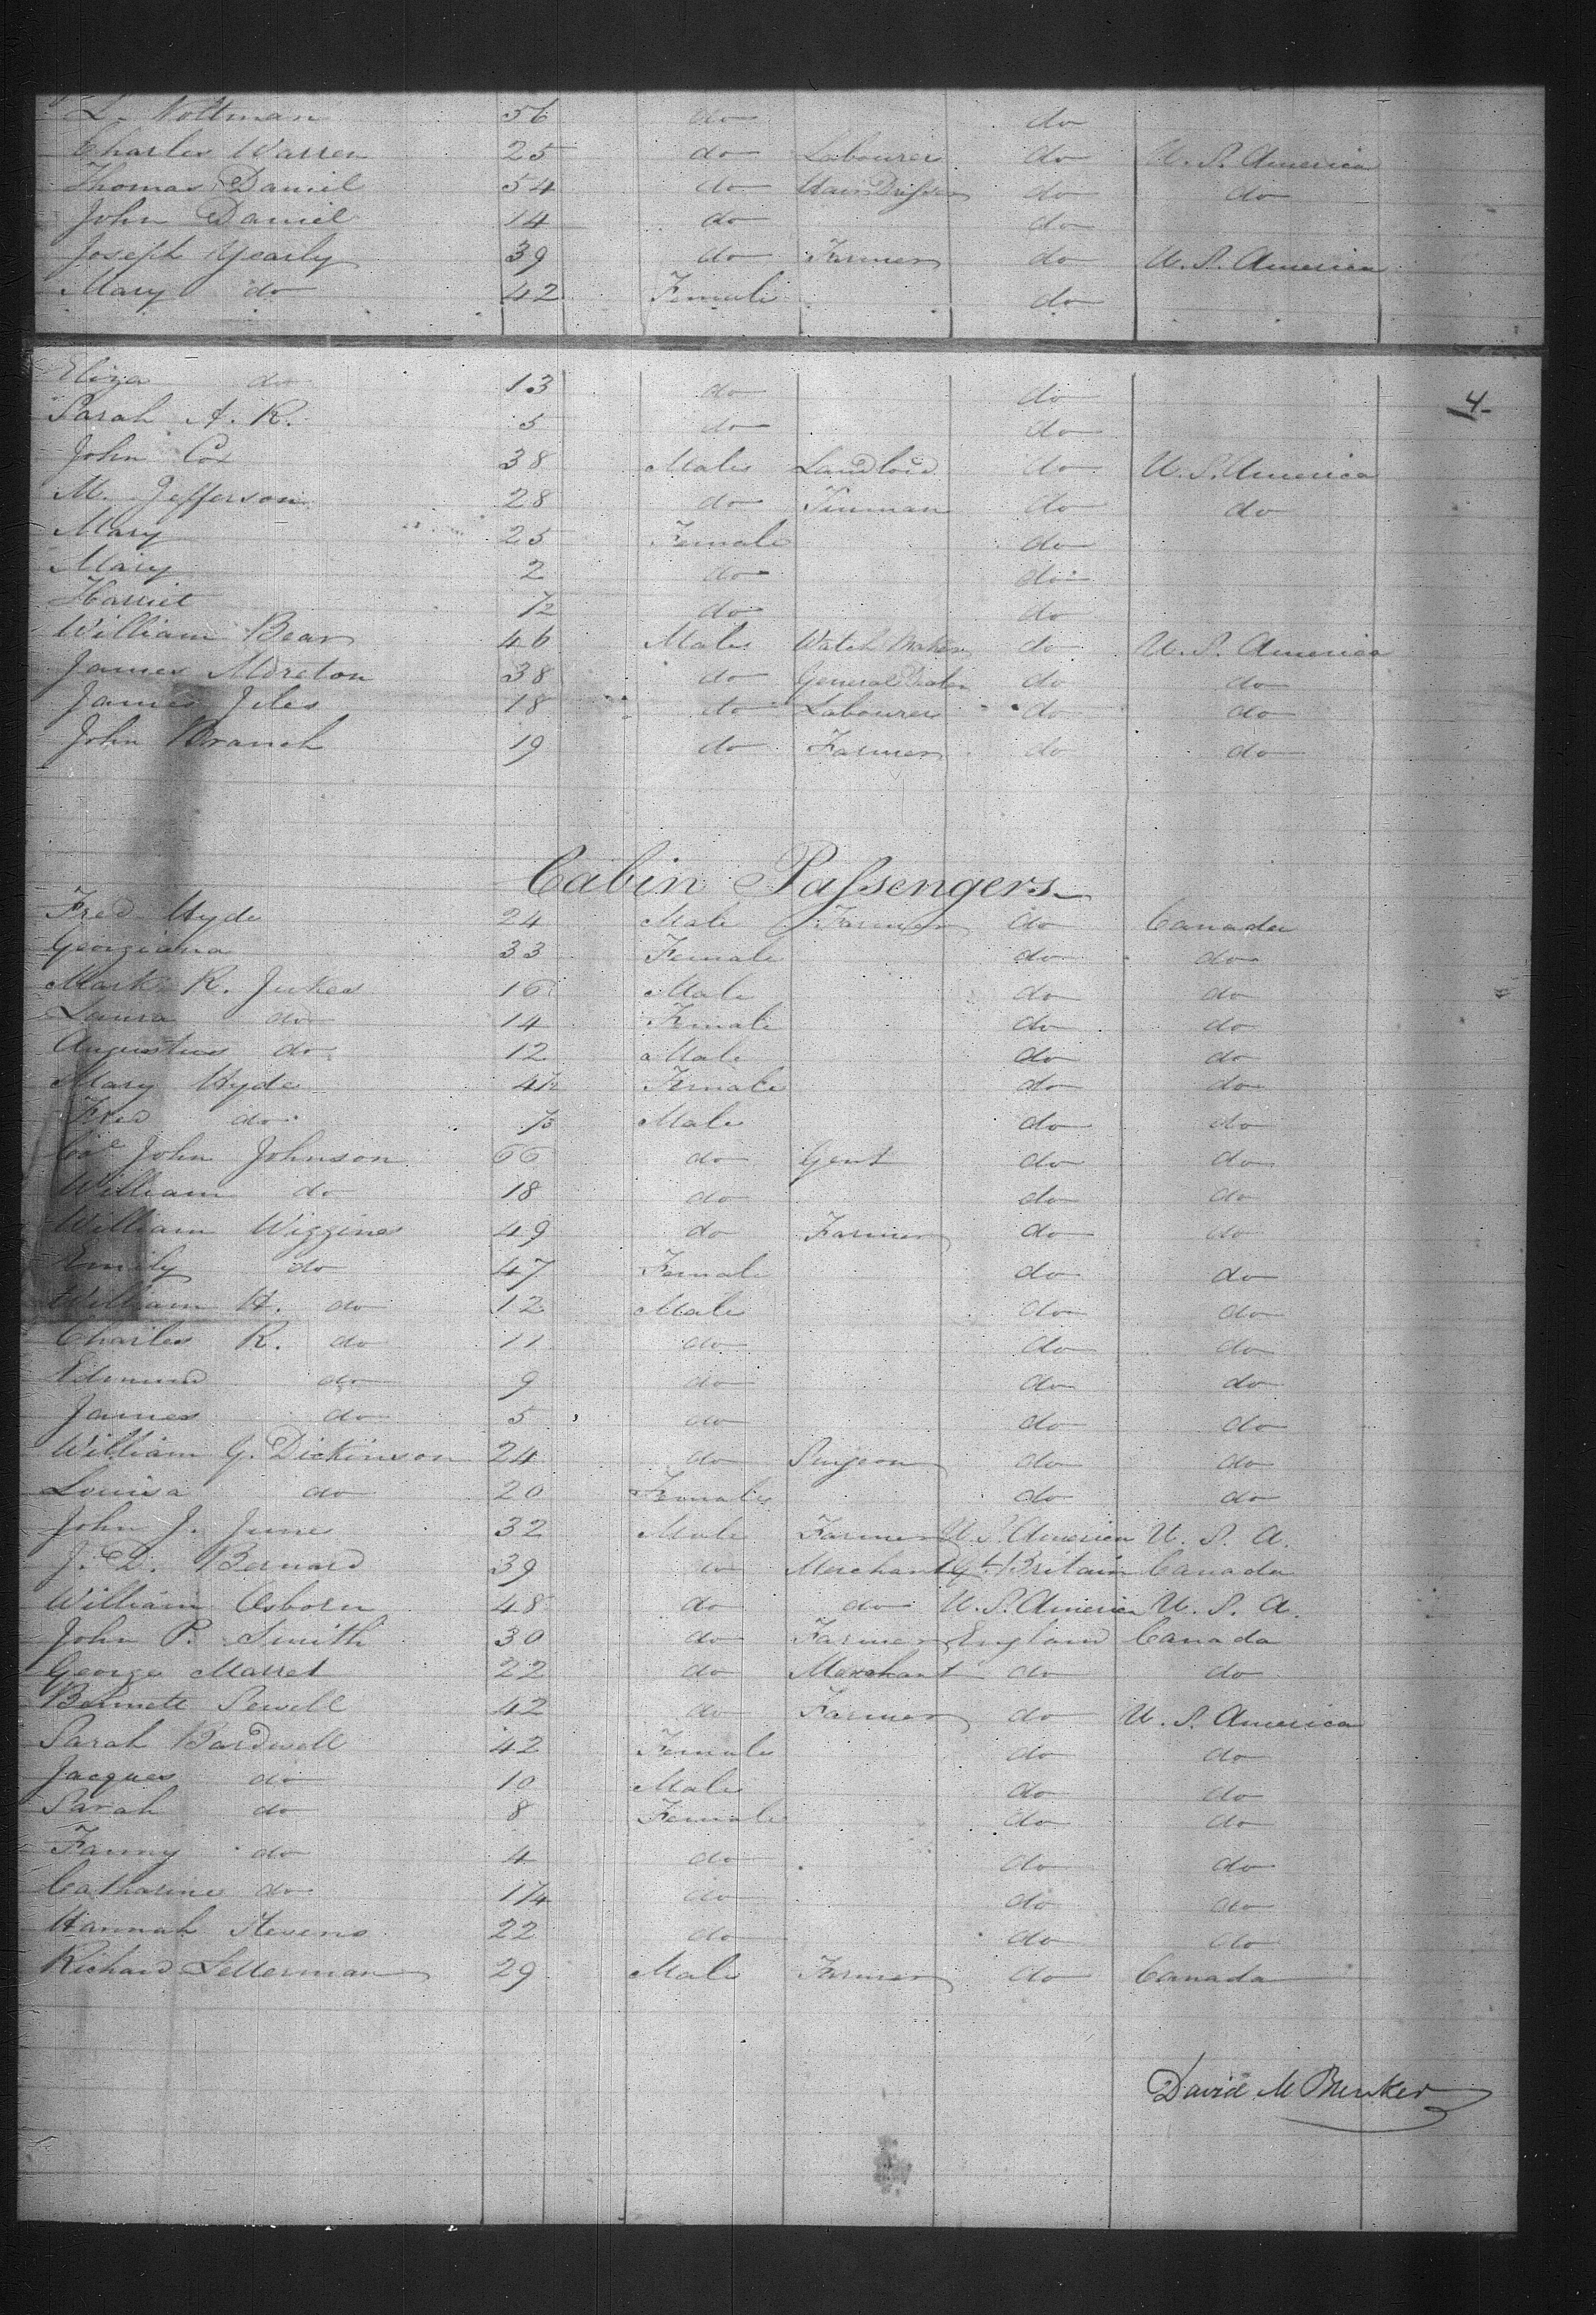 L. Noltman 56 do do
Charles Warren 25 do Labourer do U. S. America
Thomas Daniel 54 do Hair Dresser do do
John Daniel 14 do do
Joseph Yearly 39 do Farmer do U. S. America
Mary do 42 Female do
Eliza do 13 do do
4
Sarah A. R. 5 do do
John Cox 38 Male Landlord do U. S. America
M. Jefferson 28 do Tinman do do
Mary 25 Female do
Mary 2 do do
Harriet 1/2 do do
William Bear 46 Male Watch Maker do U. S. America
James Moreton 38 do General Dealer do do
James Jiles 18 do Labourer do do
John Branch 19 do Farmer do do
Cabin Passengers
Fred Hyde 24 Male Farmer do Canada
Georgiana 33 Female do do
Mark R. Jukes 16 Male do do
Laura do 14 Female do do
Augustus do 12 Male do do
Mary Hyde 4 1/2 Female do do
Fred do Male do do
John Johnson 66 do Gent do do
William do 18 do do do
William Wiggins 49 do Farmer do do
Emily do 47 Female do do
William H. do 12 Male do do
Charles R. do 11 do do do
Edmund do 9 do do do
James do 5 do do do
William G. Dickinson 24 do Surgeon do do
Louisa do 20 Female do do
John J. June 32 Male Farmer U. S. America U. S. A.
J. D. Bernard 39 do Merchant Gt. Britain Canada
William Osborn 48 do do U. S. America U. S. A.
John P. Smith 30 do Farmer England Canada
George Marret 22 do Merchant do do
Bennett Sewell 42 do Farmer do U. S. America
Sarah Bardwell 42 Female do do
Jacques do 10 Male do do
Sarah do 8 Female do do
Fanny do 4 do do do
Catharine do 1 1/4 do do do
Hannah Stevens 22 do do do
Richard Sellerman 29 Male Farmer do Canada
David M Bunker